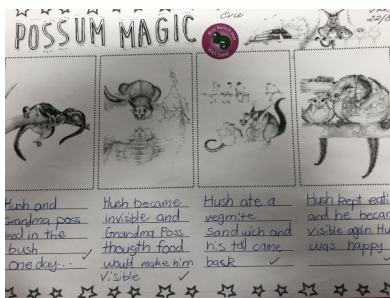 POSSUM MAGIC
Evie
22/
Hush and
Grandma poss
in the
bush
One day...
Hush became
invisible and
Grandma Poss
thougth food
would make him
visible
Hush ate a
vegmite
sandwich and
his tail came
back
Hush kept eati
and he becam
visible again. Hu
was happy